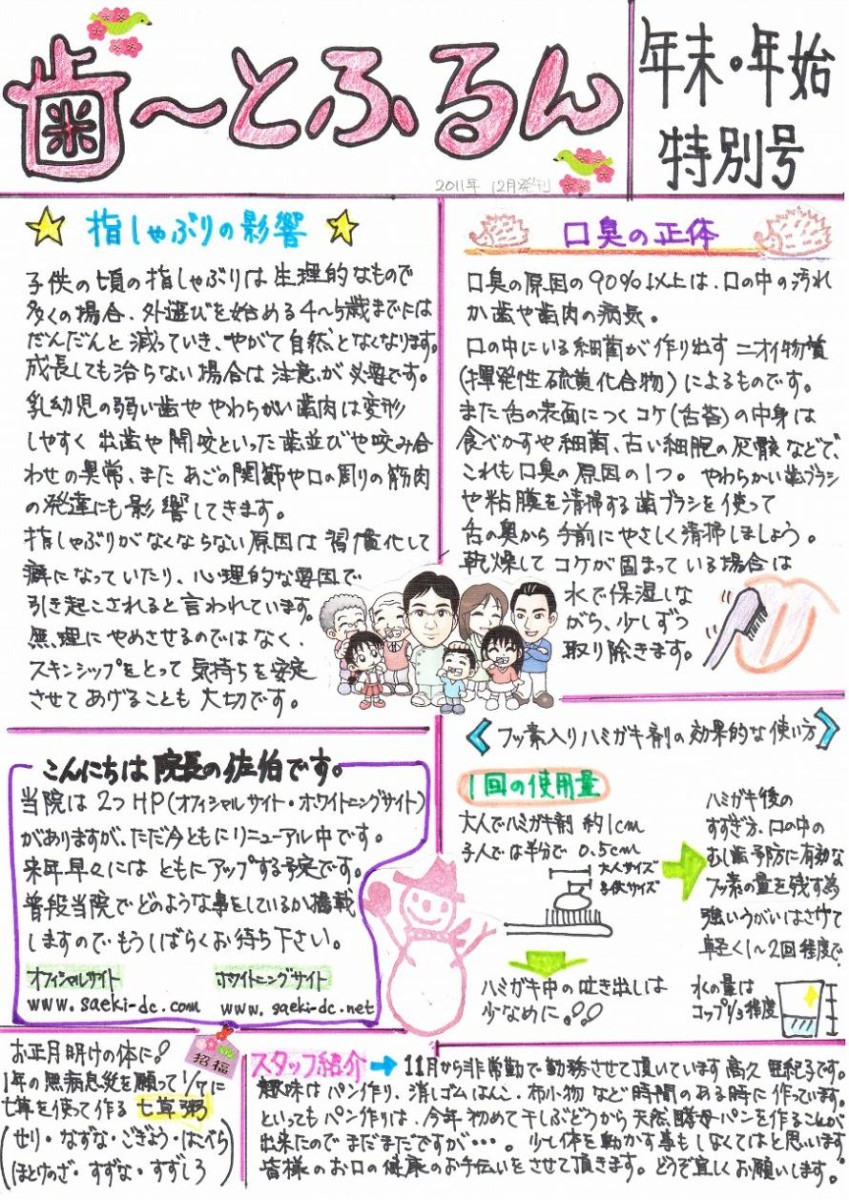 歯〜とふるん
年末・年始
特別号
2011年 12月発刊
指しゃぶりの影響
子供の頃の指しゃぶりは生理的なもので
多くの場合、外遊びを始める4〜5歳までには
だんだんと減っていき、やがて自然となくなります。
成長しても治らない場合は注意が必要です。
乳幼児の弱い歯ややわらかい歯肉は変形
しやすく出歯や開咬といった歯並びや咬み合
わせの異常、またあごの関節や口の周りの筋肉
の発達にも影響してきます。
指しゃぶりがなくならない原因は習慣化して
癖になっていたり、心理的な要因で
引き起こされると言われています。
無理にやめさせるのではなく、
スキンシップをとって気持ちを安定
させてあげることも大切です。
口臭の正体
口臭の原因の90%以上は、口の中の汚れ
か歯や歯肉の病気。
口の中にいる細菌が作り出すニオイ物質
(揮発性硫黄化合物)によるものです。
また舌の表面につくコケ(舌苔)の中身は
食べかすや細菌、古い細胞の死骸などで、
これも口臭の原因の1つ。やわらかい歯ブラシ
や粘膜を清掃する歯ブラシを使って
舌の奥から手前にやさしく清掃しましょう。
乾燥してコケが固まっている場合は
水で保湿しな
がら、少しずつ
取り除きます。
こんにちは院長の佐伯です。
当院は2つHP(オフィシャルサイト・ホワイトニングサイト)
がありますが、ただ今ともにリニューアル中です。
来年早々にはともにアップする予定です。
普段当院でどのような事をしているか掲載
しますのでもうしばらくお待ち下さい。
オフィシャルサイト ホワイトニングサイト
www.saeki-dc.com www.saeki-dc.net
フッ素入りハミガキ剤の効果的な使い方
1回の使用量
大人でハミガキ剤 約1cm
子人では半分で 0.5cm
大人サイズ
子供サイズ
ハミガキ中の吐き出しは
少なめに!!!
ハミガキ後の
すすぎ方、口の中の
むし歯予防に有効な
フッ素の量を残す為
強いうがいはさけて
軽く1〜2回程度で
水の量は
コップ1/3程度
お正月明けの体に!
1年の無病息災を願って1/7に
七草を使って作る 七草粥
(せり・なずな・ごぎょう・はこべら
ほとけのざ・すずな・すずしろ)
招福
スタッフ紹介 → 11月から非常勤で勤務させて頂いています高久 亜紀子です。
趣味はパン作り、消しゴムはんこ、布小物など時間のある時に作っています。
といってもパン作りは、今年初めて干しぶどうから天然酵母パンを作ることが
出来たのでまだまだですが・・・。少し体を動かす事もしなくてはと思います。
皆様のお口の健康のお手伝いをさせて頂きます。どうぞ宜しくお願いします。